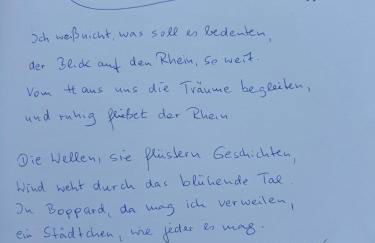 Ich weiß nicht, was soll es bedeuten,
der Blick auf den Rhein, so weit.
Vom Haus uns die Träume begleiten,
und ruhig fließet der Rhein
Die Wellen, sie flüstern Geschichten,
Wind weht durch das blühende Tal.
In Boppard, da mag ich verweilen,
ein Städtchen, wie jeder es mag.